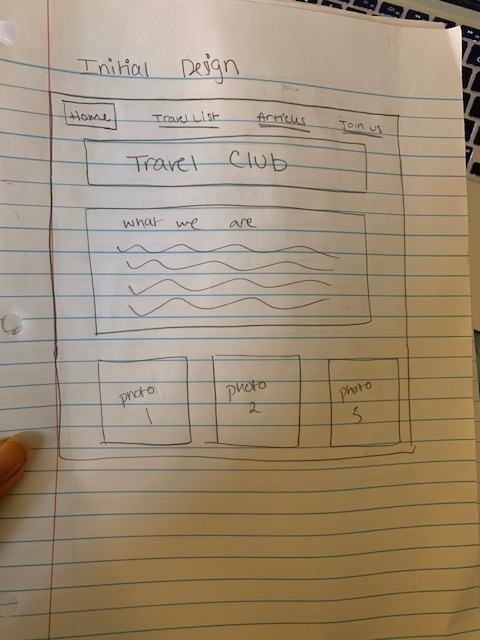 Initial Design
Join
Home Travel List Articles Join us
Travel Club
what we are
photo photo photo
1 2 3